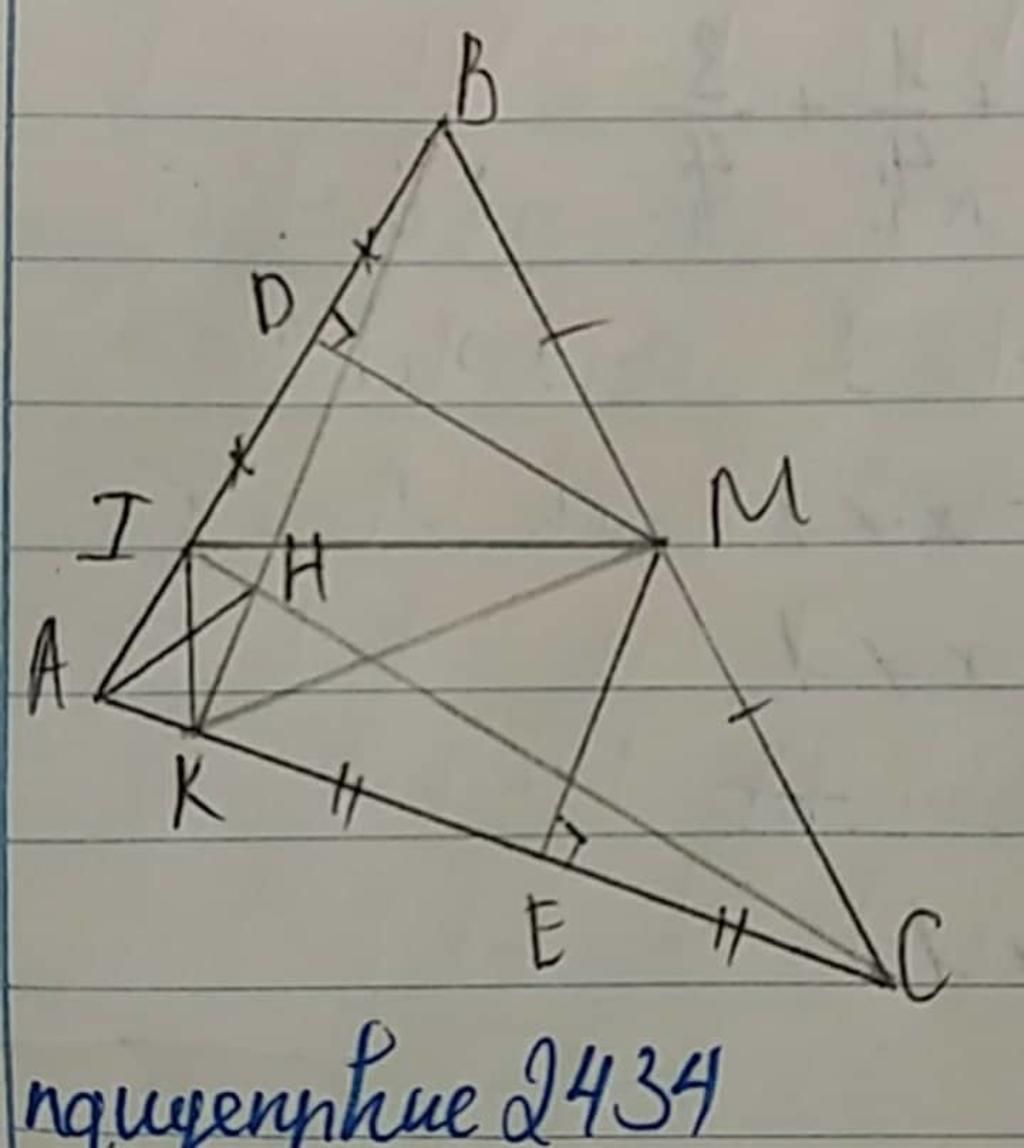 B
D
I
H
M
A
K
E
C
nguyenphue 2434